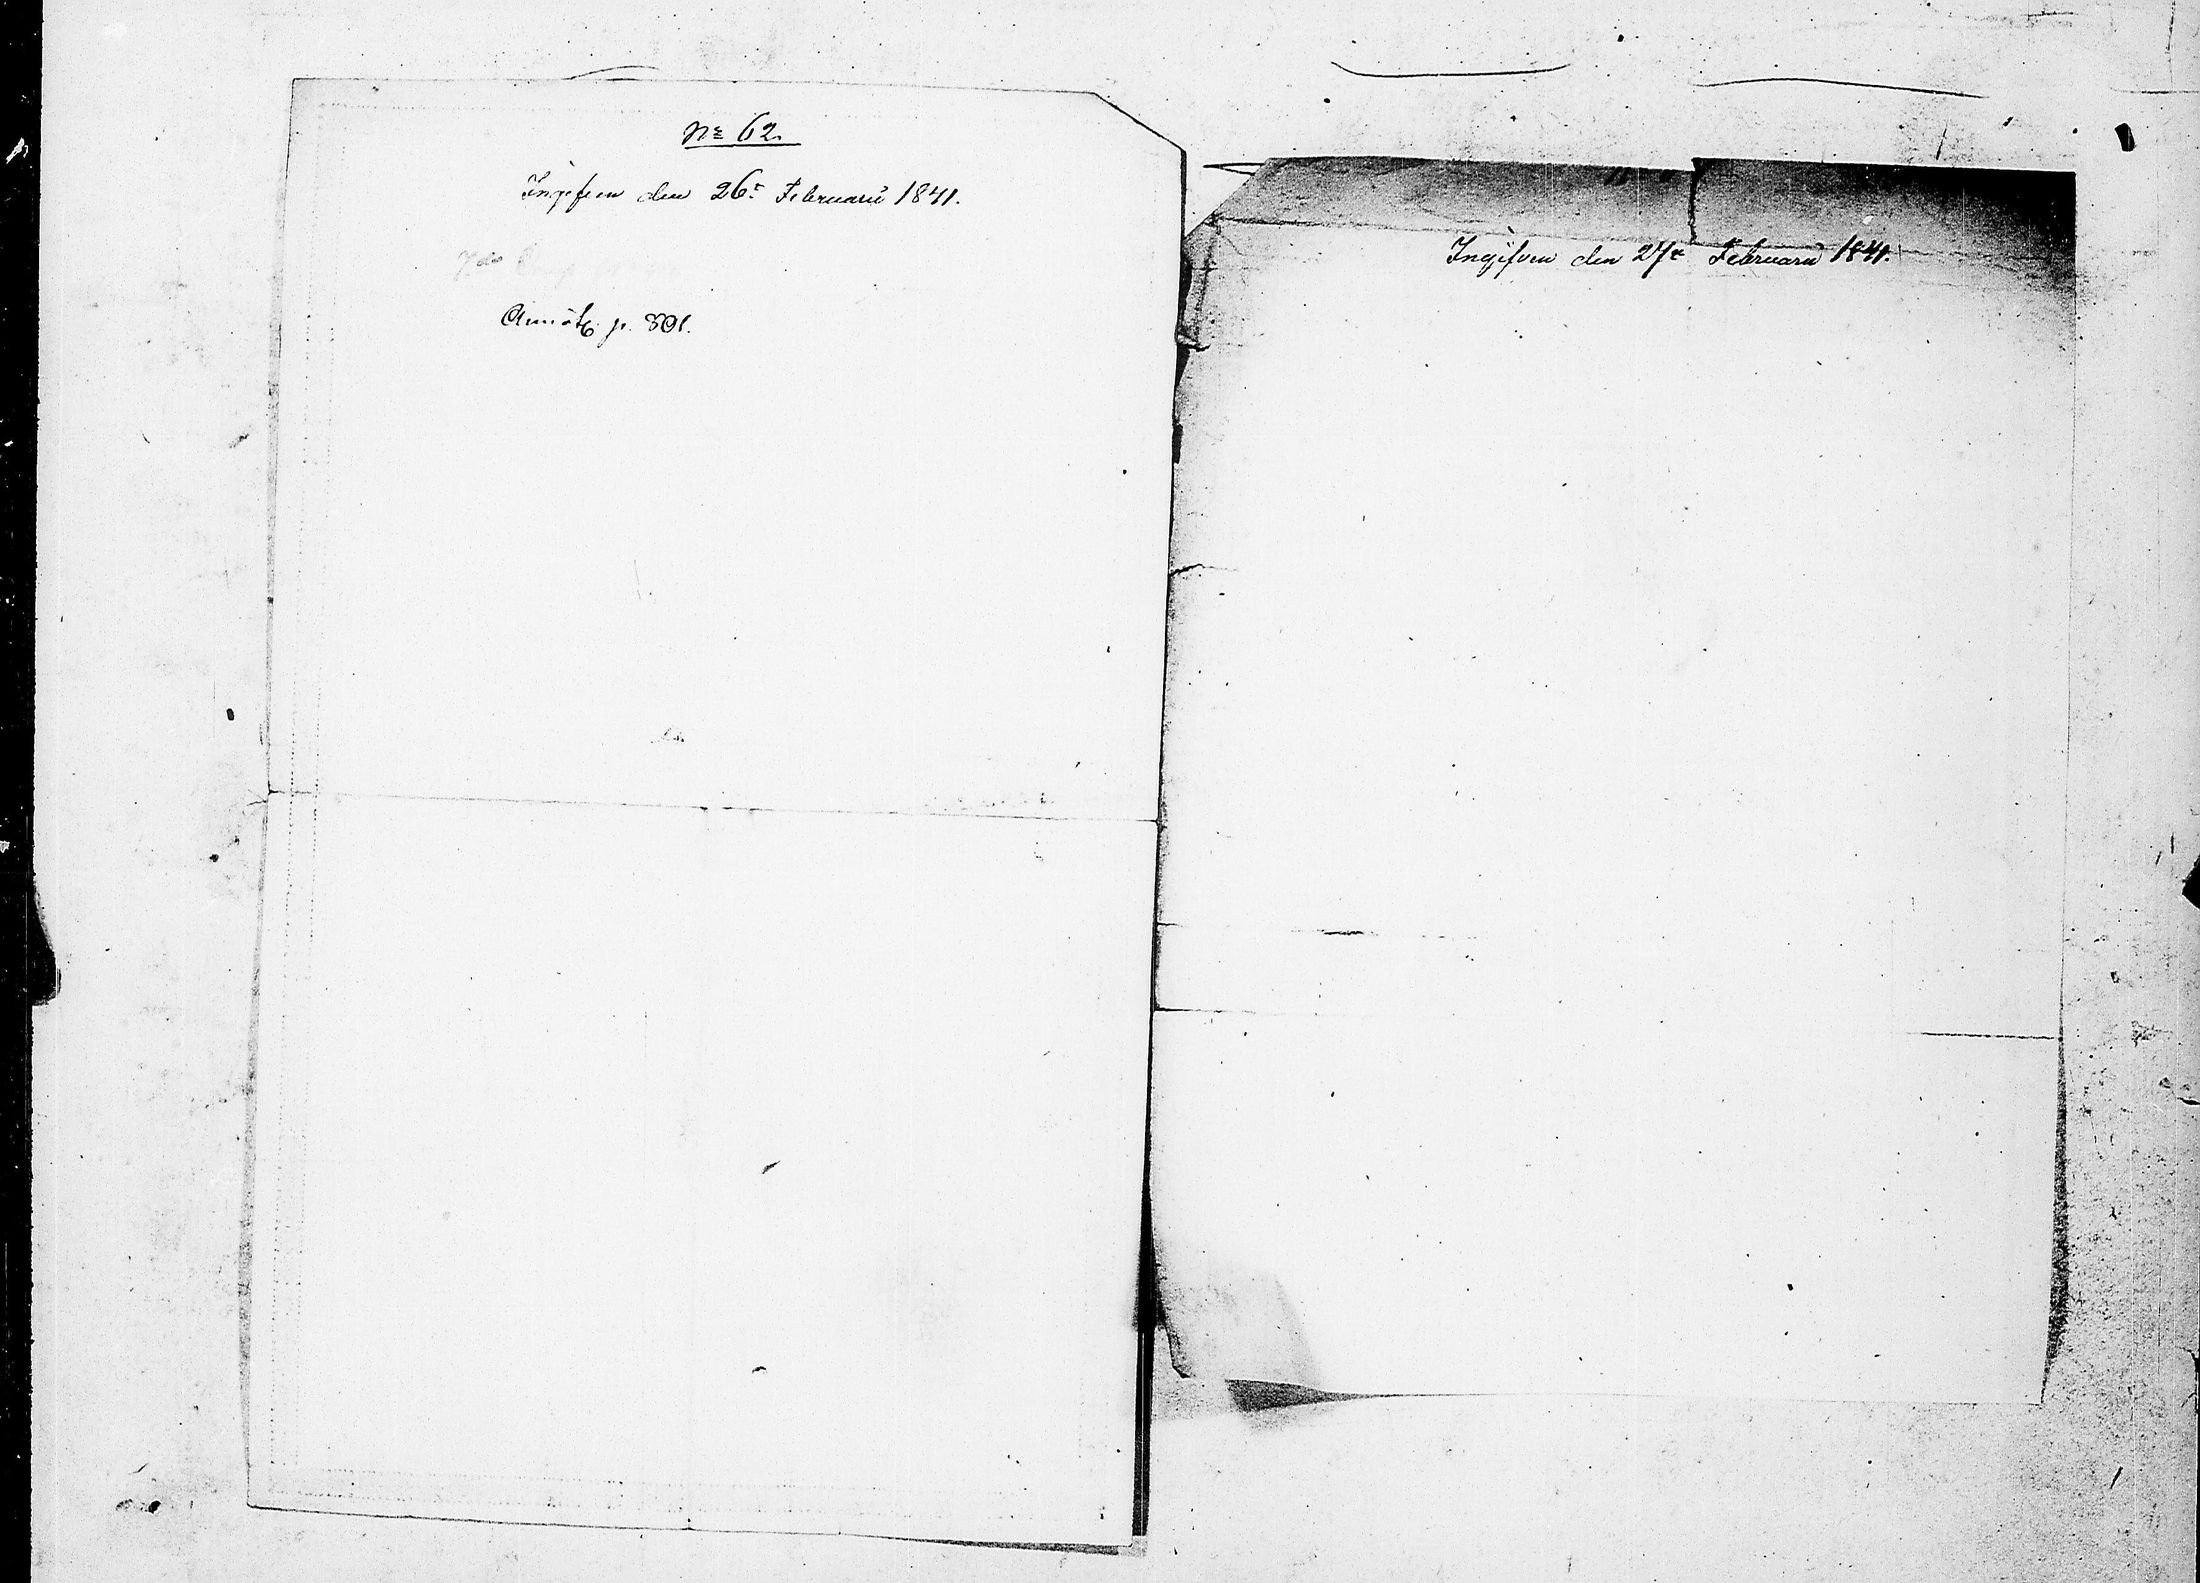 No 62.
Ingifven den 26e Februarii 1841.
p. 301.
Ingifven den 27e Februarii 1841.